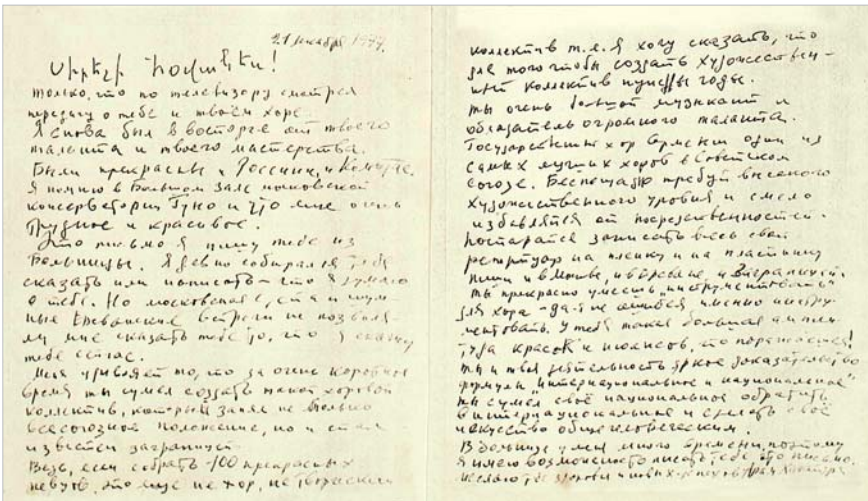 21 декабря 1977.
Սիրելի Հովհաննես!
только, что по телевизору смотрел
передачу о тебе и твоём хоре.
Я снова был в восторге от твоего
таланта и твоего мастерства.
Были прекрасны и Россини, и Комитас.
Я помню в Большом зале московской
консерватории Гуно и что мне очень
трудное и красивое.
Это письмо я пишу тебе из
больницы. Я давно собирался тебе
сказать или написать – что я думаю
о тебе. Но московская и шум
ные Ереванские встречи не позволя-
ли мне сказать тебе то, что я скажу
тебе сейчас.
Меня удивляет то, что за очень короткое
время ты сумел создать такой хоровой
коллектив, который занял не только
всесоюзное положение, но и стал
известен заграницей.
Ведь, если собрать 100 прекрасных
певцов, это еще не хор, не творческий
коллектив т.е. я хочу сказать, что
для того чтобы создать художествен-
ный коллектив нужны годы.
Ты очень большой музыкант и
обладатель огромного таланта.
Государственный хор Армении один из
самых лучших хоров в Советском
Союзе. Беспощадно требуй высокого
художественного уровня и смело
избавляйся от посредственностей.
Постарайся записать весь свой
репертуар на пленку и на пластинку
пиши и в Москве, и в Ереване, и заграницей.
Ты прекрасно умеешь "инструментовать"
для хора – да я не ошибся именно инстру-
ментовать. У тебя такая большая ампли-
туда красок и нюансов, что поражаешься!
Ты и твоя деятельность яркое доказательство
формулы "интернациональное и национальное"
ты сумел своё национальное обратить
в интернациональное и сделать своё
искусство общечеловеческим.
В больнице у меня много времени, поэтому
я имею возможность писать тебе это письмо.
Желаю тебе здоровья и новых успехов